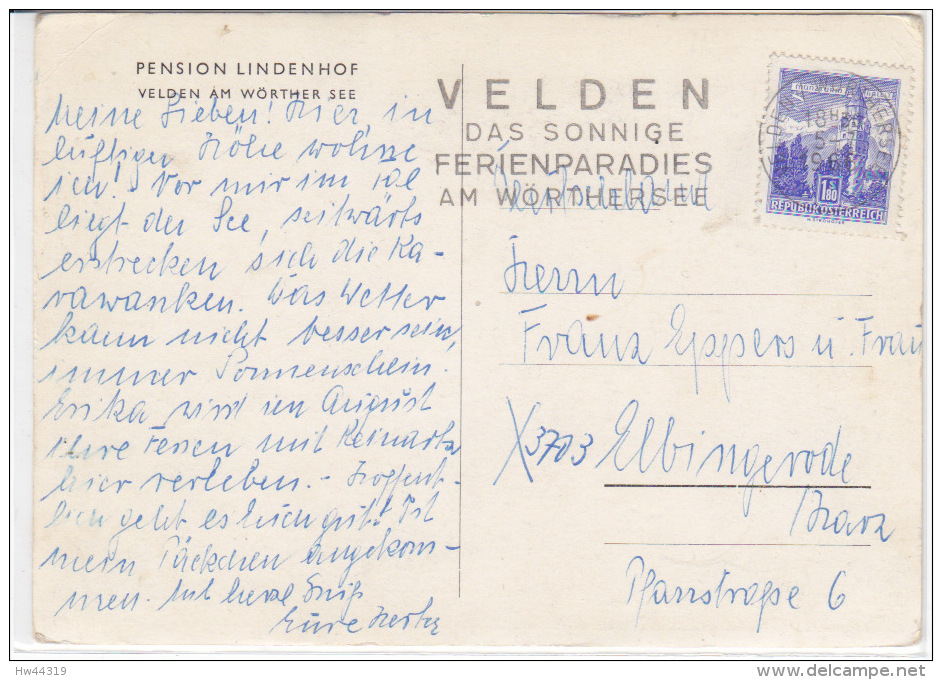 PENSION LINDENHOF
VELDEN AM WÖRTHER SEE
Meine Lieben! Hier, in
luftiger Höhe wohne
ich! Vor mir im Tal
liegt der See, seitwärts
erstrecken sich die Ka-
rawanken. Das Wetter
kann nicht besser sein,
immer Sonnenschein.
Erika wird im August
ihre Ferien mit
hier verleben. - Hoffent-
lich geht es Euch gut! Ist
mein Päckchen angekom-
men. Mit herzl Gruß
Eure
VELDEN
DAS SONNIGE
FERIENPARADIES
AM WÖRTHERSEE
18
5
1,80
REPUBLIK ÖSTERREICH
Herrn
Franz Eppers u. Frau
X3703 Elbingerode
/Harz
Pfarrstraße 6
Hw44319
www.delcampe.net